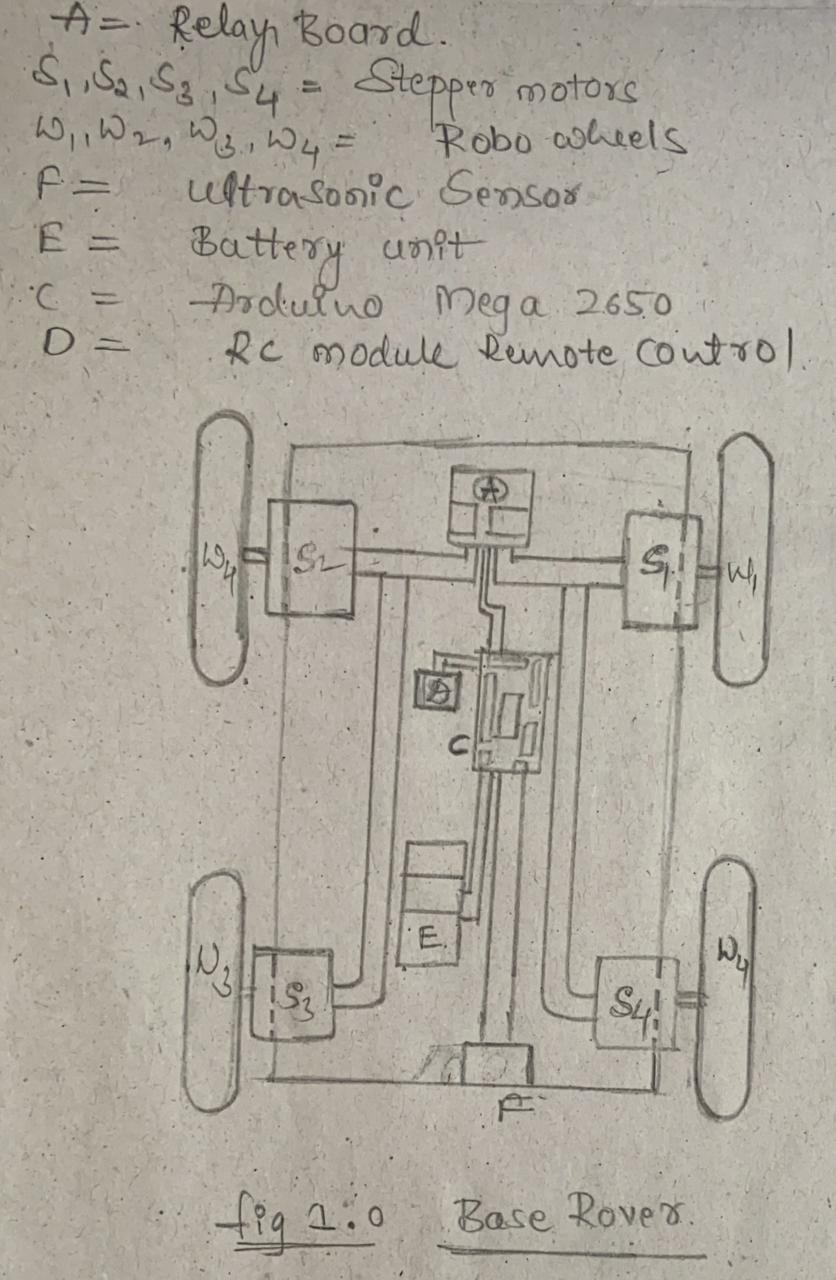 A = Relay Board.
S1, S2, S3, S4 = Stepper motors
W1, W2, W3, W4 = Robo wheels
F = Ultrasonic Sensor
E = Battery unit
C = Arduino Mega 2650
D = RC module Remote Control.
A
W4 S2 S1 W1
D
C
E
W3 S3 S4 W4
F
fig 1.0 Base Rover.